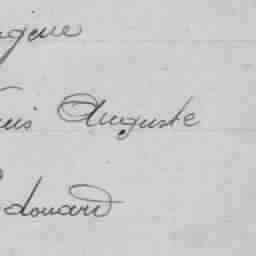 ugène
uis Auguste
Edouard